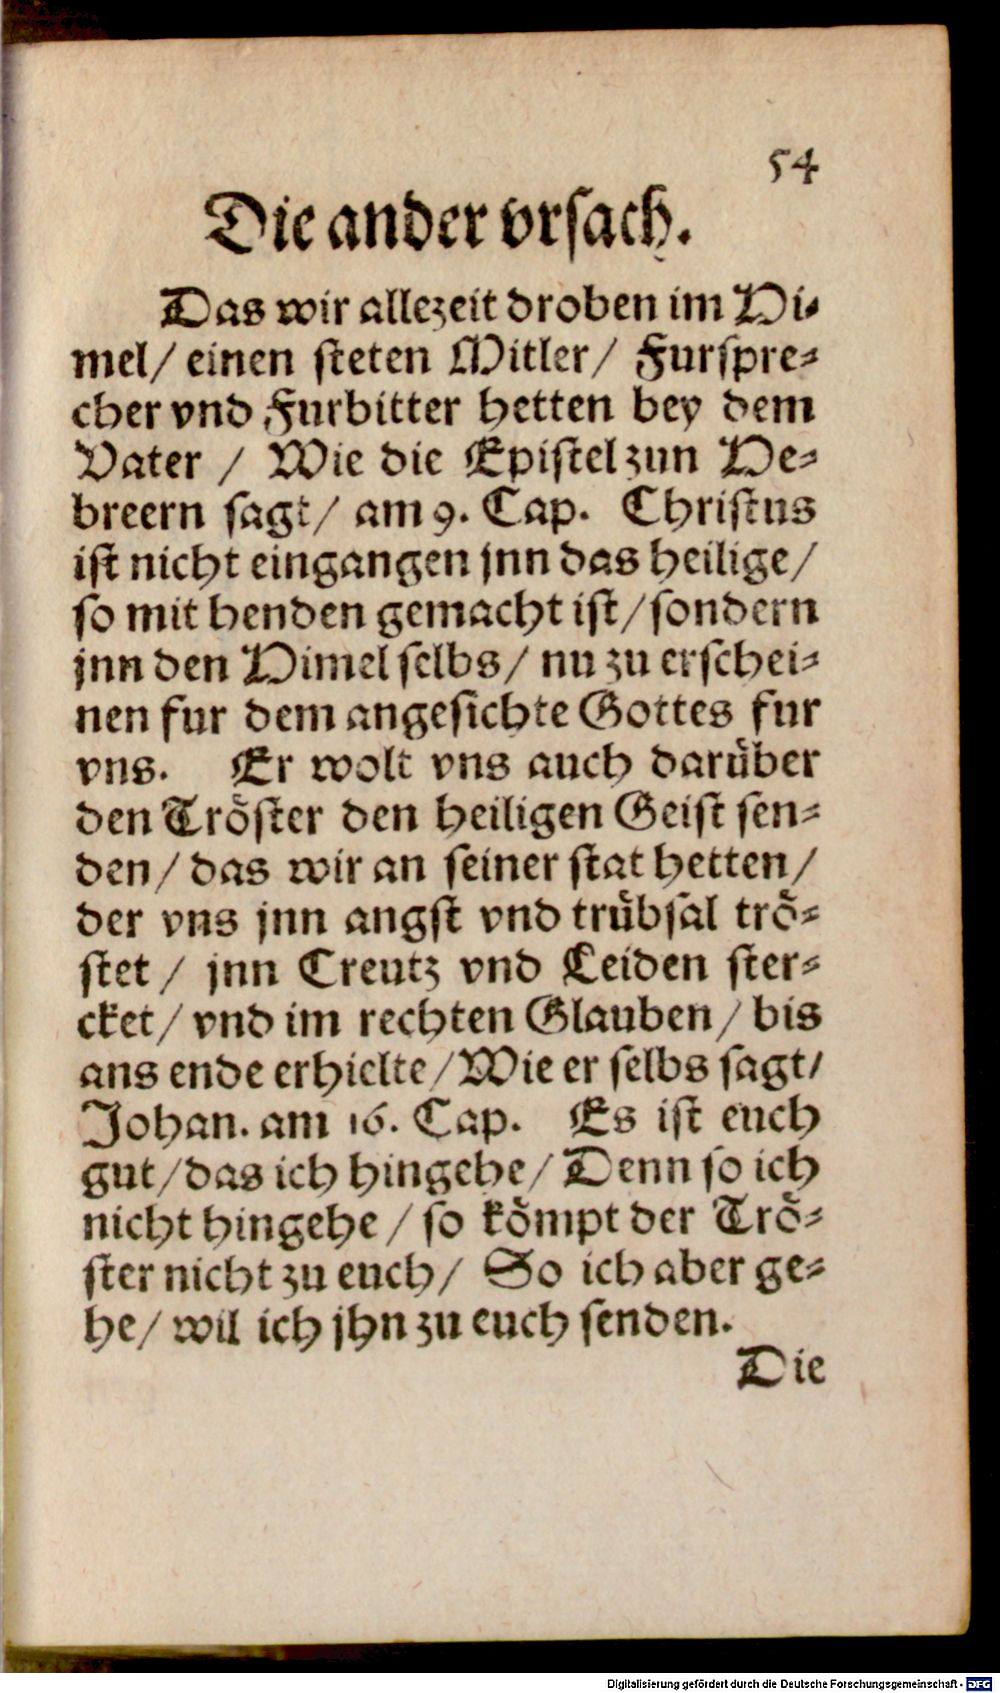 54
Die ander vrsach.
Das wir allezeit droben im Hi-
mel/ einen steten Mitler/ Furspre-
cher vnd Furbitter hetten bey dem
Vater / Wie die Epistel zun He-
breern sagt/ am 9. Cap. Christus
ist nicht eingangen jnn das heilige/
so mit henden gemacht ist/ sondern
jnn den Himel selbs/ nu zu erschei-
nen fur dem angesichte Gottes fur
vns. Er wolt vns auch darüber
den Tröster den heiligen Geist sen-
den/ das wir an seiner stat hetten/
der vns jnn angst vnd trübsal trö-
stet / jnn Creutz vnd Leiden ster-
cket/ vnd im rechten Glauben/ bis
ans ende erhielte/ Wie er selbs sagt/
Johan. am 16. Cap. Es ist euch
gut/ das ich hingehe/ Denn so ich
nicht hingehe / so kömpt der Trö-
ster nicht zu euch/ So ich aber ge-
he/ wil ich jhn zu euch senden.
Die
Digitalisierung gefördert durch die Deutsche Forschungsgemeinschaft - DFG